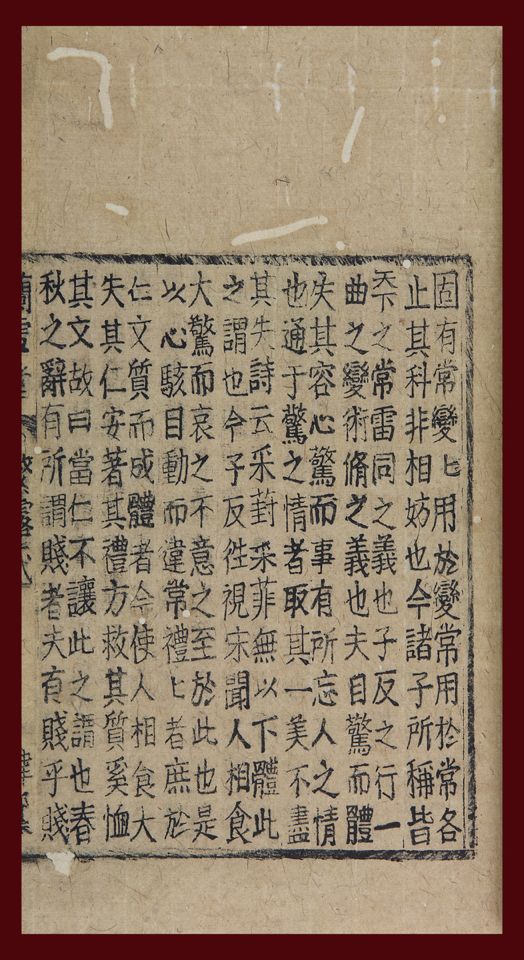 固有常變匕用於變常用於常各
止其科非相妨也今諸子所稱皆
天下之常雷同之義也子反之行一
曲之變術脩之義也夫目驚而體
失其容心驚而事有所忘人之情
也通于驚之情者取其一美不盡
其失詩云采葑采菲無以下體此
之謂也今子反徃視宋聞人相食
大驚而哀之不意之至於此也是
以心駭目動而違常禮匕者庶於
仁文質而成體者今使人相食大
失其仁安著其禮方救其質奚恤
其文故曰當仁不讓此之謂也春
秋之辭有所謂賤者夫有賤乎賤